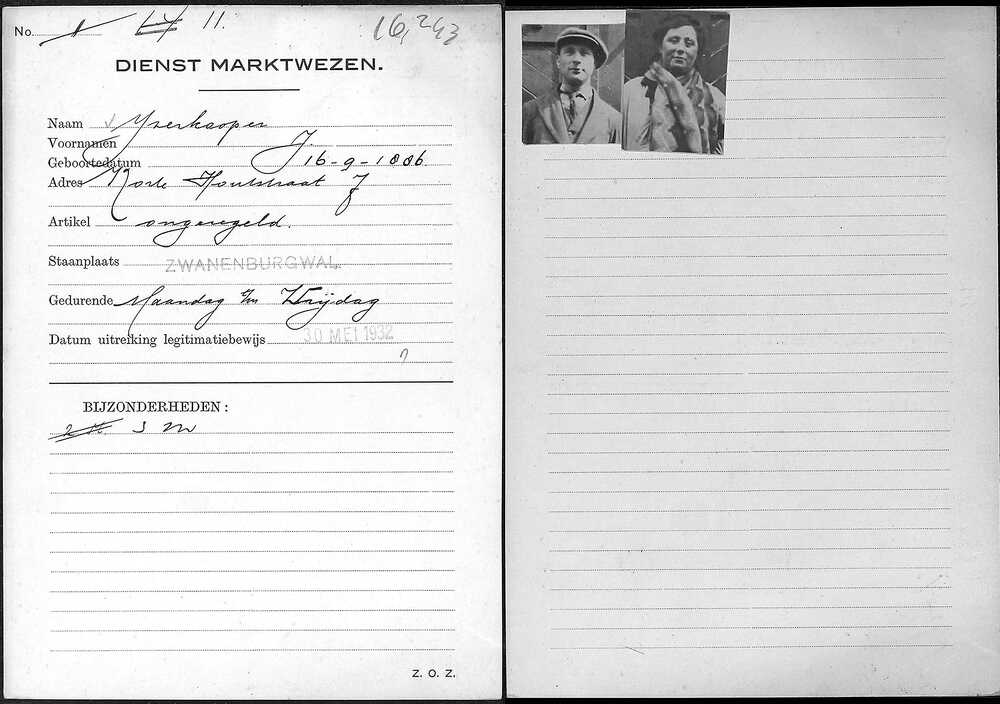 No. 1 14 11. 16,243
DIENST MARKTWEZEN.
Naam Yserkooper
Voornamen J.
Geboortedatum 16-9-1886.
Adres Korte Houtstraat 7
Artikel ongeregeld.
Staanplaats ZWANENBURGWAL.
Gedurende Maandag t/m Vrijdag
Datum uitreiking legitimatiebewijs 30 MEI 1932
BIJZONDERHEDEN:
2 M. 3 m
Z. O. Z.